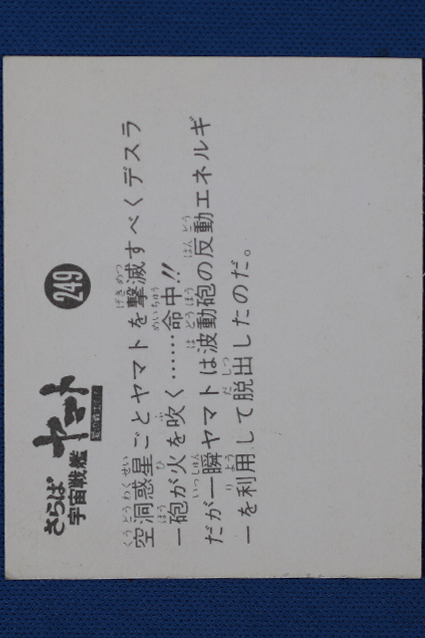 さらば
宇宙戦艦
ヤマト
愛の戦士たち
249
空洞惑星ごとヤマトを撃滅すべくデスラ
ー砲が火を吹く……命中!!
だが一瞬ヤマトは波動砲の反動エネルギ
ーを利用して脱出したのだ。